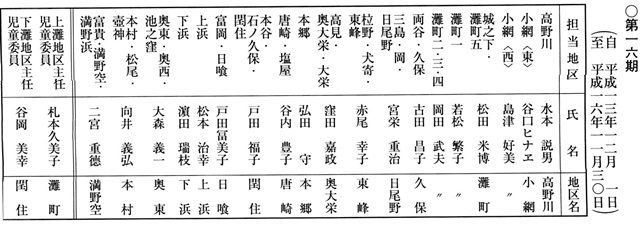 〇第一六期
(自 平成一三年一二月 一日
至 平成一六年一一月三〇日)
担当地区 氏名 地区名
高野川 水本説男 高野川
小網〈東〉 谷口ヒナヱ 小網
小網〈西〉 島津好美 〃
城之下・灘町五 松田米博 灘町
灘町一 若松繁子 〃
灘町二・三・四 岡田武夫 〃
両谷・久保 古田昌子 久保
三島・岡・日尾野 宮栄重治 日尾野
拉野・犬寄・東峰 赤尾幸子 東峰
高見・奥大栄・大栄 窪田嘉政 奥大栄
本郷 弘田守 本郷
唐崎・塩屋 谷内豊子 唐崎
本谷・石ノ久保・閏住 戸田福子 閏住
富岡・日喰 戸田富美子 日喰
上浜 松本治幸 上浜
下浜 濵田瑞枝 下浜
奥東・奥西・池之窪 大森義一 奥東
本村・松尾・壺神 向井義弘 本村
富貴・満野空・満野浜 二宮重徳 満野空
上灘地区主任児童委員 札本久美子 灘町
下灘地区主任児童委員 谷岡美幸 閏住